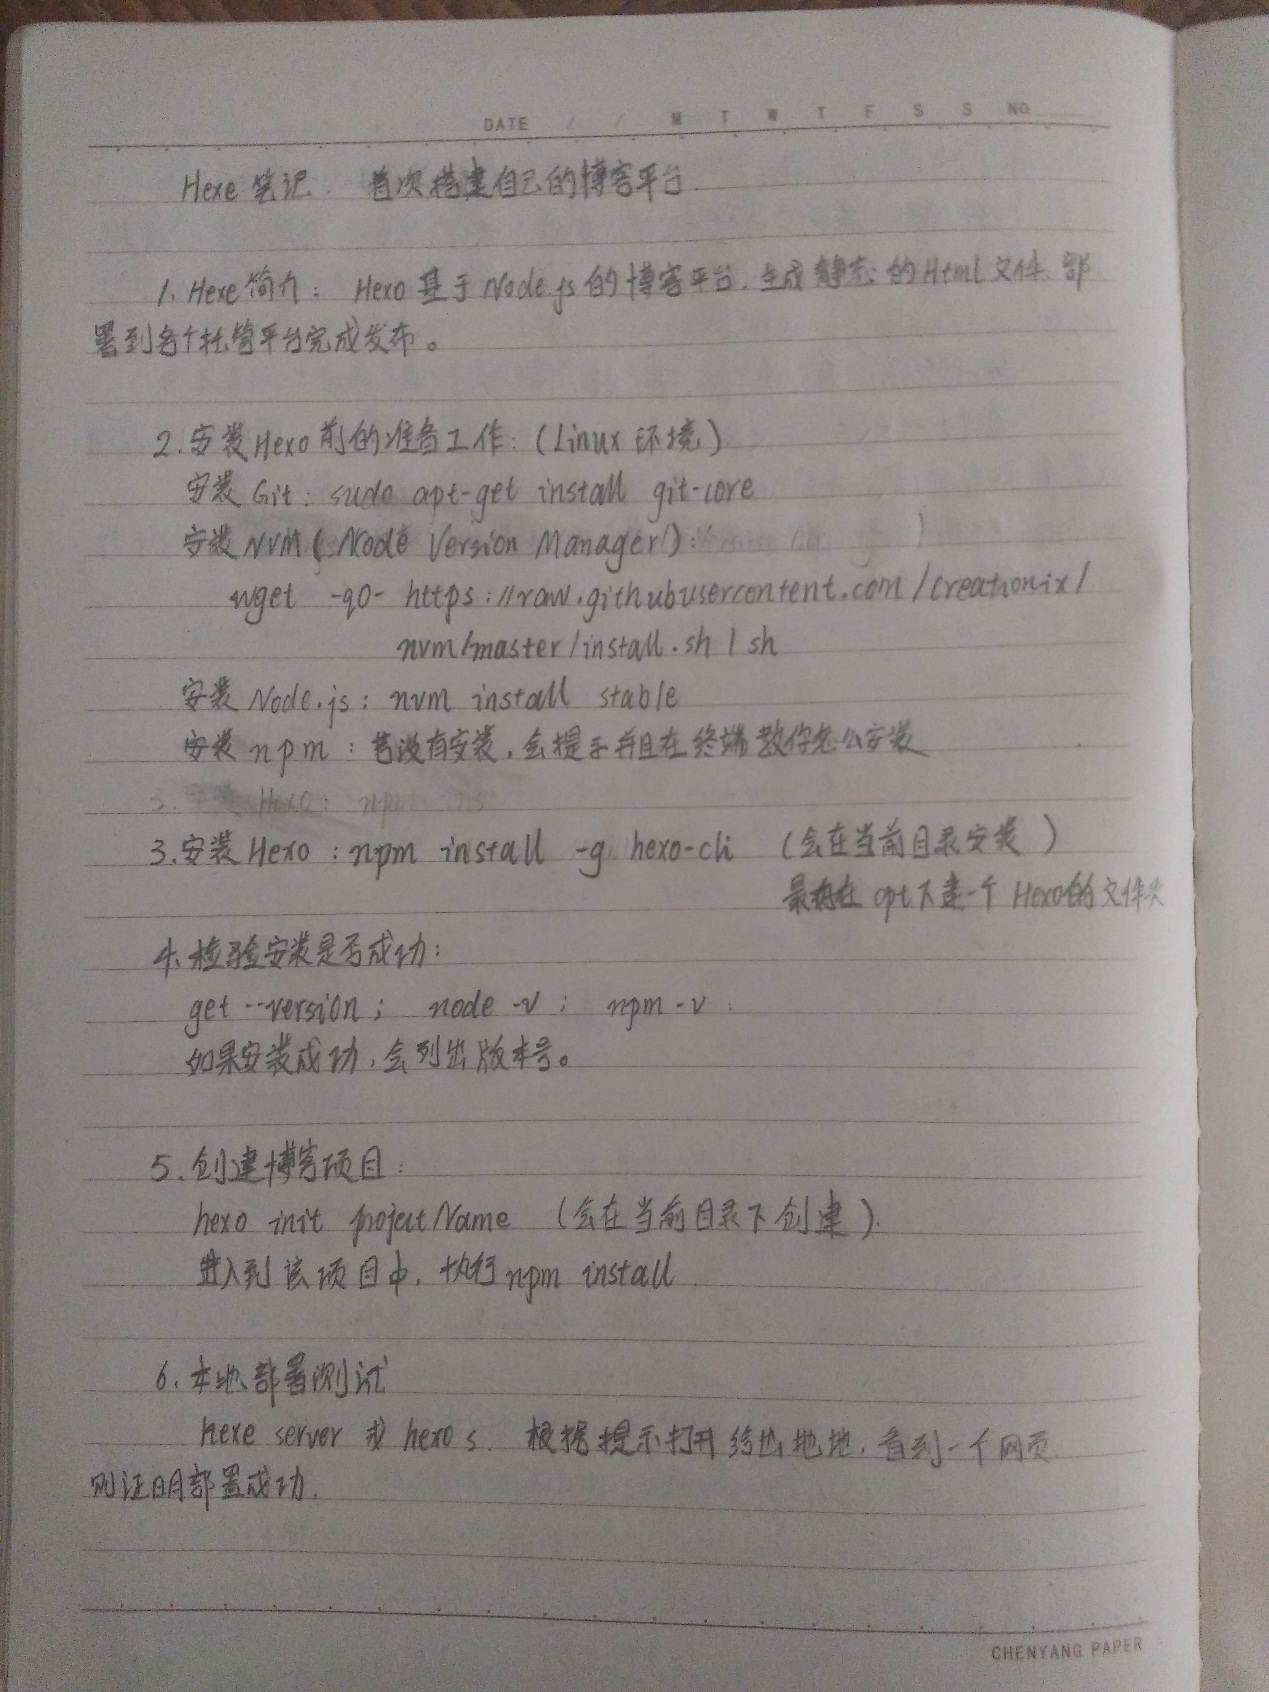 DATE / / M T W T F S S NO
Hexe 笔记. 首次搭建自己的博客平台.
1. Hexe简介: Hexo基于Node.js的博客平台,生成静态的Html文件.部
署到各个托管平台完成发布。
2.安装Hexo前的准备工作:(Linux环境)
安装Git: sudo apt-get install git-core
安装NVM(Node Version Manager):
wget -qO- https://raw.githubusercontent.com/creationix/
nvm/master/install.sh | sh
安装 Node.js: nvm install stable
安装npm: 若没有安装,会提示并且在终端教你怎么安装
3. 安装 Hexo: npm ins
3.安装Hexo:npm install -g hexo-cli (会在当前目录安装)
最好在opt下建一个Hexo的文件夹
4.检验安装是否成功:
get --version; node -v; npm -v.
如果安装成功,会列出版本号。
5.创建博客项目:
hexo init projectName (会在当前目录下创建).
进入到该项目中,执行npm install.
6.本地部署测试
hexe server 或 hexo s. 根据提示打开给出地地,看到一个网页
则证明部置成功.
CHENYANG PAPER